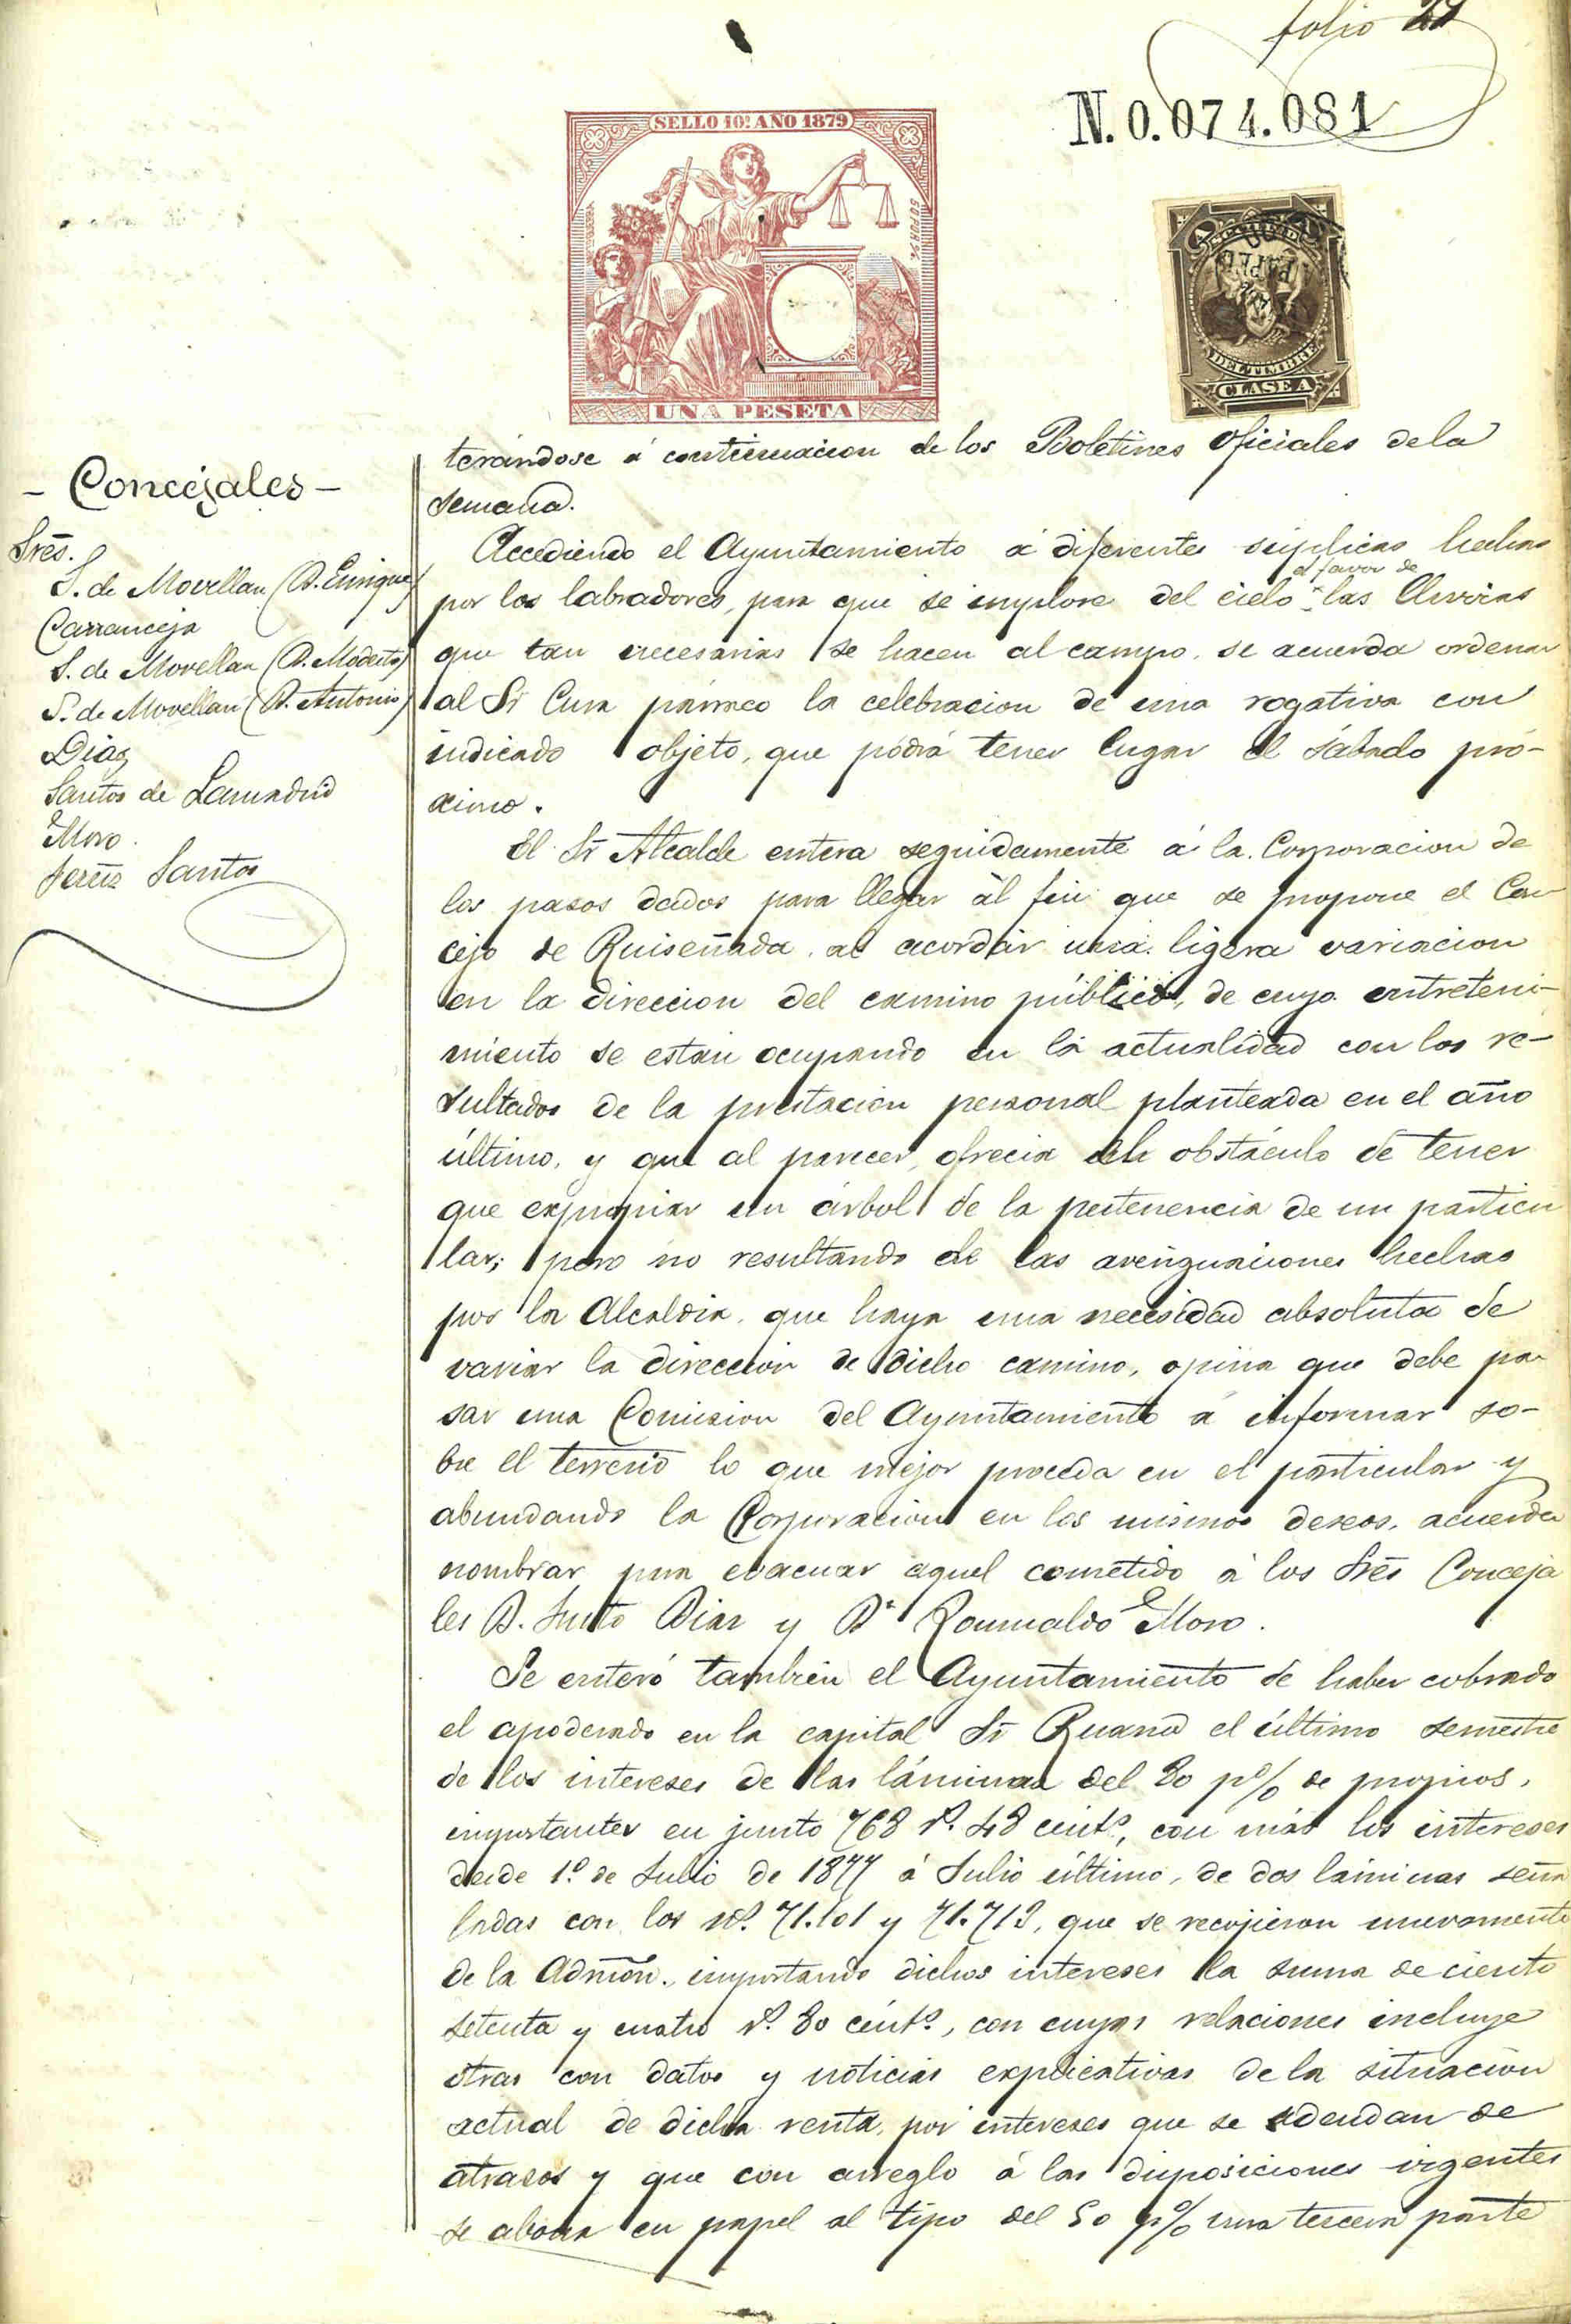 folio 22
N.0.074.081
SELLO 10º AÑO 1879
UNA PESETA
DEL TIMBRE
CLASE A
- Concejales -
Sres.
S. de Movellan (D. Enrique)
Carranceja
S. de Movellan (D. Modesto)
S. de Movellan (D. Antonio)
Diaz
Santos de Lamadrid
Moro.
Santos
terándose á continuacion de los Boletines oficiales de la
semana.
Accediendo el Ayuntamiento á diferentes súplicas hechas
por los labradores, para que se implore del cielo el favor de las lluvias
que tan necesarias se hacen al campo, se acuerda ordenar
al Sr Cura párroco la celebracion de una rogativa con
indicado objeto, que podrá tener lugar el sábado pró-
ximo.
El Sr Alcalde entera seguidamente á la Corporacion de
los pasos dados para llegar al fin que se propone el Con
cejo de Ruiseñada, al acordar una ligera variacion
en la direccion del camino público, de cuyo entreteni-
miento se estan ocupando en la actualidad con los re-
sultados de la prestacion personal planteada en el año
último, y que al parecer, ofrecia el obstáculo de tener
que expropiar un árbol de la pertenencia de un particu
lar; pero no resultando de las averiguaciones hechas
por la Alcaldia, que haya una necesidad absoluta de
variar la direccion de dicho camino, opina que debe pa-
sar una Comision del Ayuntamiento á informar so-
bre el terreno lo que mejor proceda en el particular y
abundando la Corporacion en los mismos deseos, acuerda
nombrar para evacuar aquel cometido á los Sres Conceja
les D. Justo Diaz y Dn Romualdo Moro.
Se enteró tambien el Ayuntamiento de haber cobrado
el apoderado en la capital Sr Ruano el último semestre
de los intereses de las láminas del 80 p% de propios,
importantes en junto 768 rs. 48 cents, con más los intereses
desde 1º de Julio de 1877 á Julio último, de dos láminas seña
ladas con los nos. 71.101 y 71.713, que se recojieron nuevamente
de la Admón. importando dichos intereses la suma de ciento
setenta y cuatro rs. 80 cents, con cuyas relaciones incluye
otras con datos y noticias explicativas de la situacion
actual de dicha renta, por intereses que se adeudan de
atrasos y que con arreglo á las disposiciones vigentes
se abona en papel al tipo del 50 p% una tercera parte